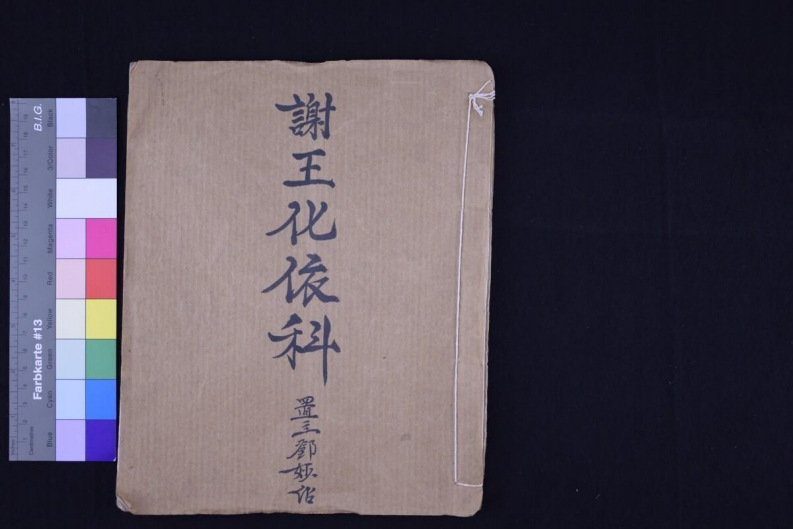 謝王化依科
置主鄧妙
B.I.G.
Farbkarte #13
Blue
Cyan
Green
Yellow
Red
Magenta
White
3/Color
Black